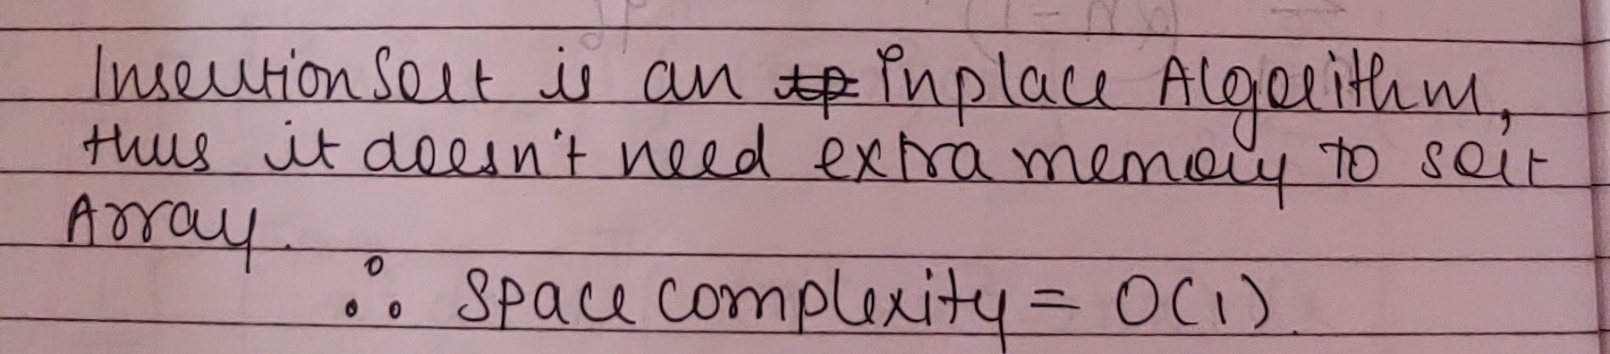 Insertion Sort is an Inplace Algorithm,
thus it doesn't need extra memory to sort
Array.
∴ Space complexity = O(1).